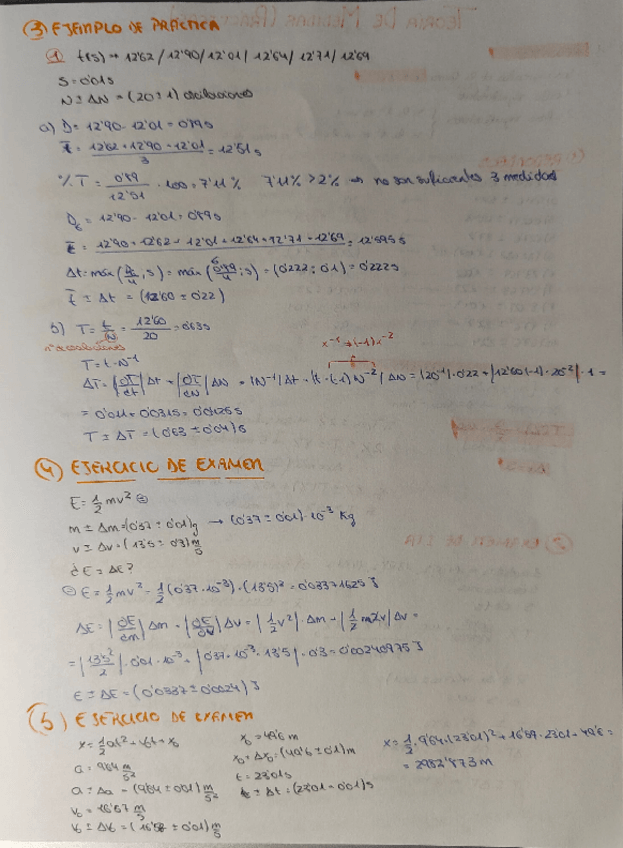 ③ EJEMPLO DE PRÁCTICA
1 t(s) → 12'62 / 12'90 / 12'01 / 12'64 / 12'71 / 12'69
S = 0'01s
N ± ΔN = (20 ± 1) oscilaciones
a) D = 12'90 - 12'01 = 0'89 s
t̄ = (12'62 + 12'90 + 12'01)/3 = 12'51 s
% T = 0'89/12'51 · 100 = 7'11% 7'11% > 2% → no son suficientes 3 medidas
D6 = 12'90 - 12'01 = 0'89 s
t̄ = (12'90 + 12'62 + 12'01 + 12'64 + 12'71 + 12'69)/6 = 12'595 s
Δt = máx (D6/4 ; s) = máx (0'89/4 ; s) = (0'222 ; 0'1) = 0'222 s
t̄ ± Δt = (12'60 ± 0'22)
b) T = t/N = 12'60/20 = 0'63 s
nº oscilaciones
x⁻¹ → (-1)x⁻²
T = t · N⁻¹
ΔT = |∂T/∂t| Δt + |∂T/∂N| ΔN = |N⁻¹| Δt + |t · (-1) N⁻²| ΔN = |20⁻¹| · 0'22 + |12'60 (-1) · 20⁻²| · 1 =
= 0'011 + 0'0315 = 0'0425 s
T ± ΔT = (0'63 ± 0'04) s
④ EJERCICIO DE EXAMEN
E = 1/2 mv²
m ± Δm = (0'37 ± 0'01) g → (0'37 ± 0'01) · 10⁻³ Kg
v ± Δv = (13'5 ± 0'3) m/s
¿ E ± ΔE ?
E = 1/2 mv² = 1/2 (0'37 · 10⁻³) · (13'5)² = 0'03371625 J
ΔE = |∂E/∂m| Δm + |∂E/∂v| Δv = |1/2 v²| · Δm + |1/2 m2v| Δv =
= |13'5²/2| · 0'01 · 10⁻³ + |0'37 · 10⁻³ · 13'5| · 0'3 = 0'00240975 J
E ± ΔE = (0'0337 ± 0'0024) J
EJERCICIO DE EXAMEN
x = 1/2 at² + v₀t + x₀
a = 9'64 m/s²
a ± Δa = (9'64 ± 0'01) m/s²
v₀ = 16'57 m/s
v₀ ± Δv₀ = ( ± 0'01) m/s
x₀ = 49'6 m
x₀ ± Δx₀ = (49'6 ± 0'1) m
t = 23'01 s
t ± Δt = (23'01 ± 0'01) s
x = 1/2 · 9'64 · (23'01)² + · 23'01 + 49'6 =
= 2982'873 m